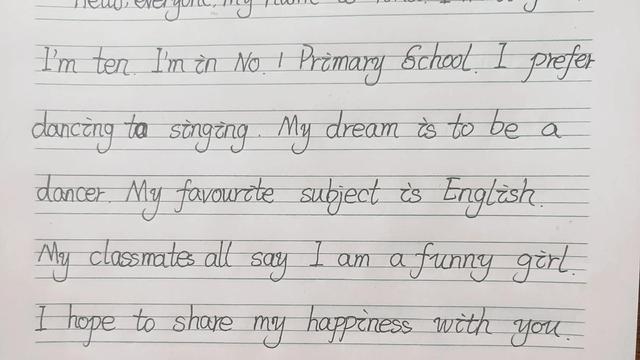 Hello, everyone, my name is
I'm ten. I'm in No. 1 Primary School. I prefer
dancing to singing. My dream is to be a
dancer. My favourite subject is English.
My classmates all say I am a funny girl.
I hope to share my happiness with you.